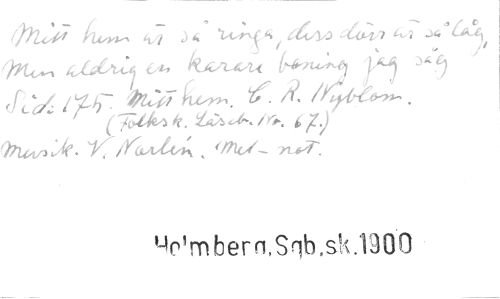 Mitt hem är så ringa, dess dörr är så låg,
Men aldrig en karare boning jag såg
Sid: 175. Mitt hem. C. R. Nyblom.
(Folksk. Läseb. Nr. 67.)
Musik. V. Norlén. Mel-not.
Holmberg,Sgb,sk.1900